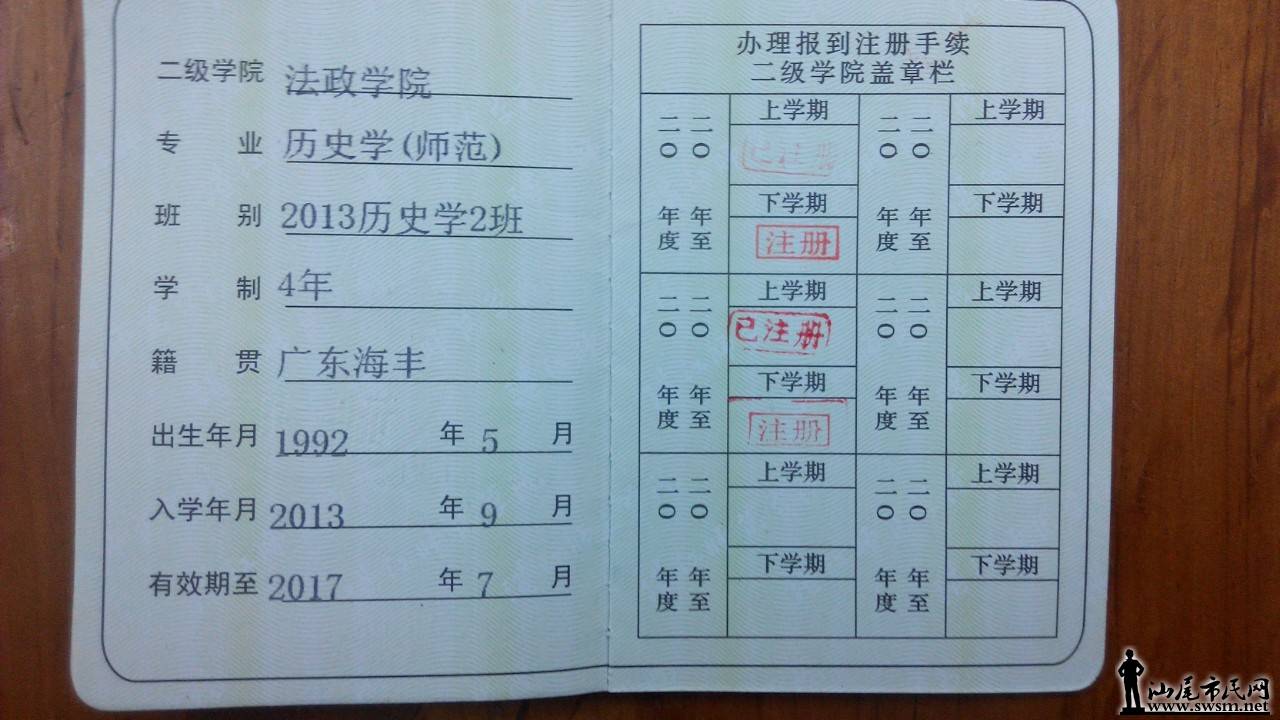 二级学院 法政学院
专 业 历史学(师范)
班 别 2013历史学2班
学 制 4年
籍 贯 广东海丰
出生年月 1992 年 5 月
入学年月 2013 年 9 月
有效期至 2017 年 7 月
办理报到注册手续
二级学院盖章栏
二〇 年度
二〇 年至
上学期
已注册
下学期
注册
二〇 年度
二〇 年至
上学期
下学期
二〇 年度
二〇 年至
上学期
已注册
下学期
注册
二〇 年度
二〇 年至
上学期
下学期
二〇 年度
二〇 年至
上学期
下学期
二〇 年度
二〇 年至
上学期
下学期
汕尾市民网
www.swsm.net